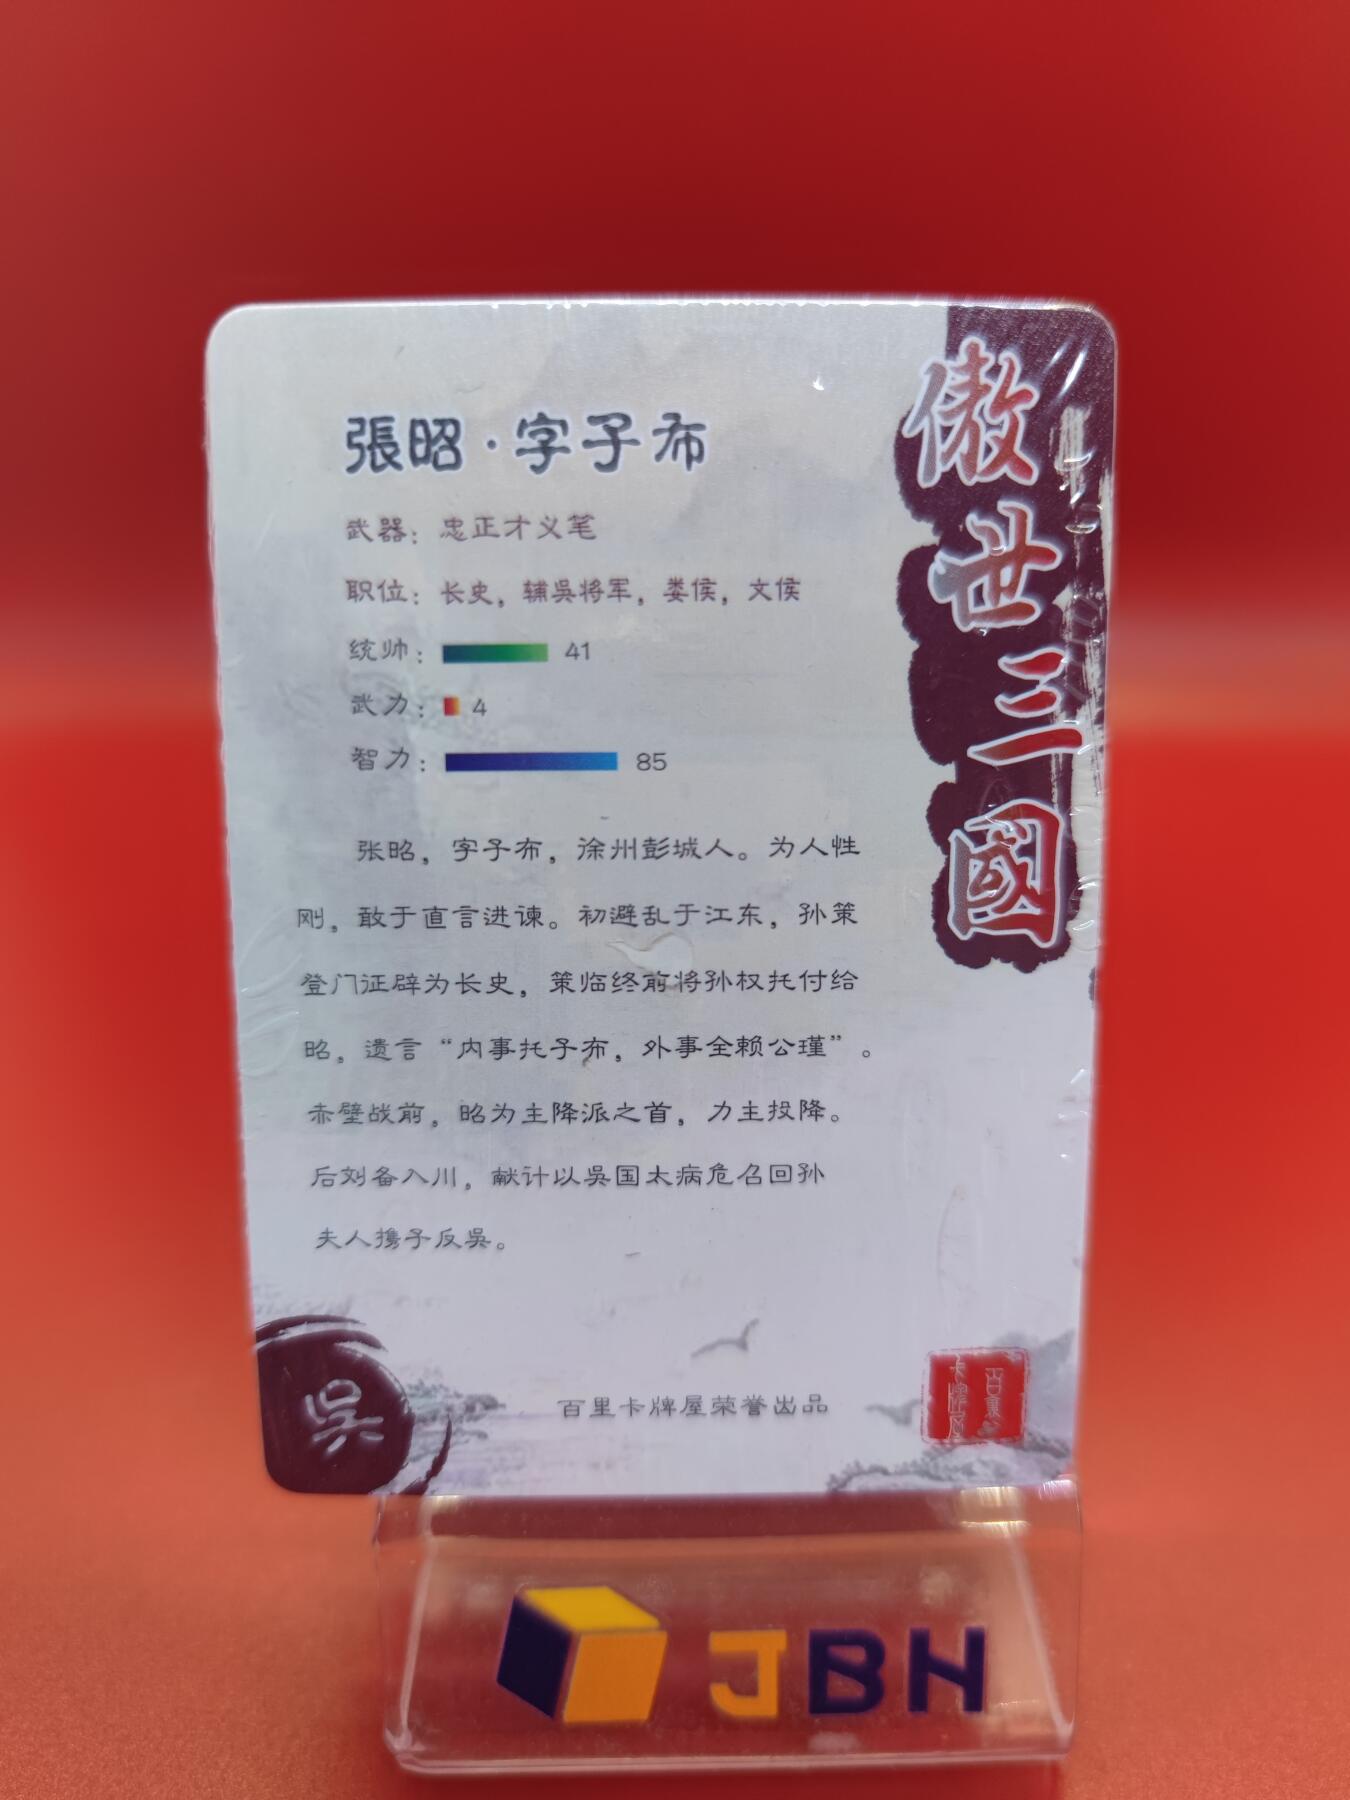 張昭·字子布
武器：忠正才义笔
职位：长史，辅吳将军，娄侯，文侯
统帅：41
武力：4
智力：85
张昭，字子布，徐州彭城人。为人性
刚，敢于直言进谏。初避乱于江东，孙策
登门征辟为长史，策临终前将孙权托付给
昭，遗言“内事托子布，外事全赖公瑾”。
赤壁战前，昭为主降派之首，力主投降。
后刘备入川，献计以吳国太病危召回孙
夫人携子反吳。
傲世三國
吳
百里卡牌屋荣誉出品
百裏
卡牌屋
JBH